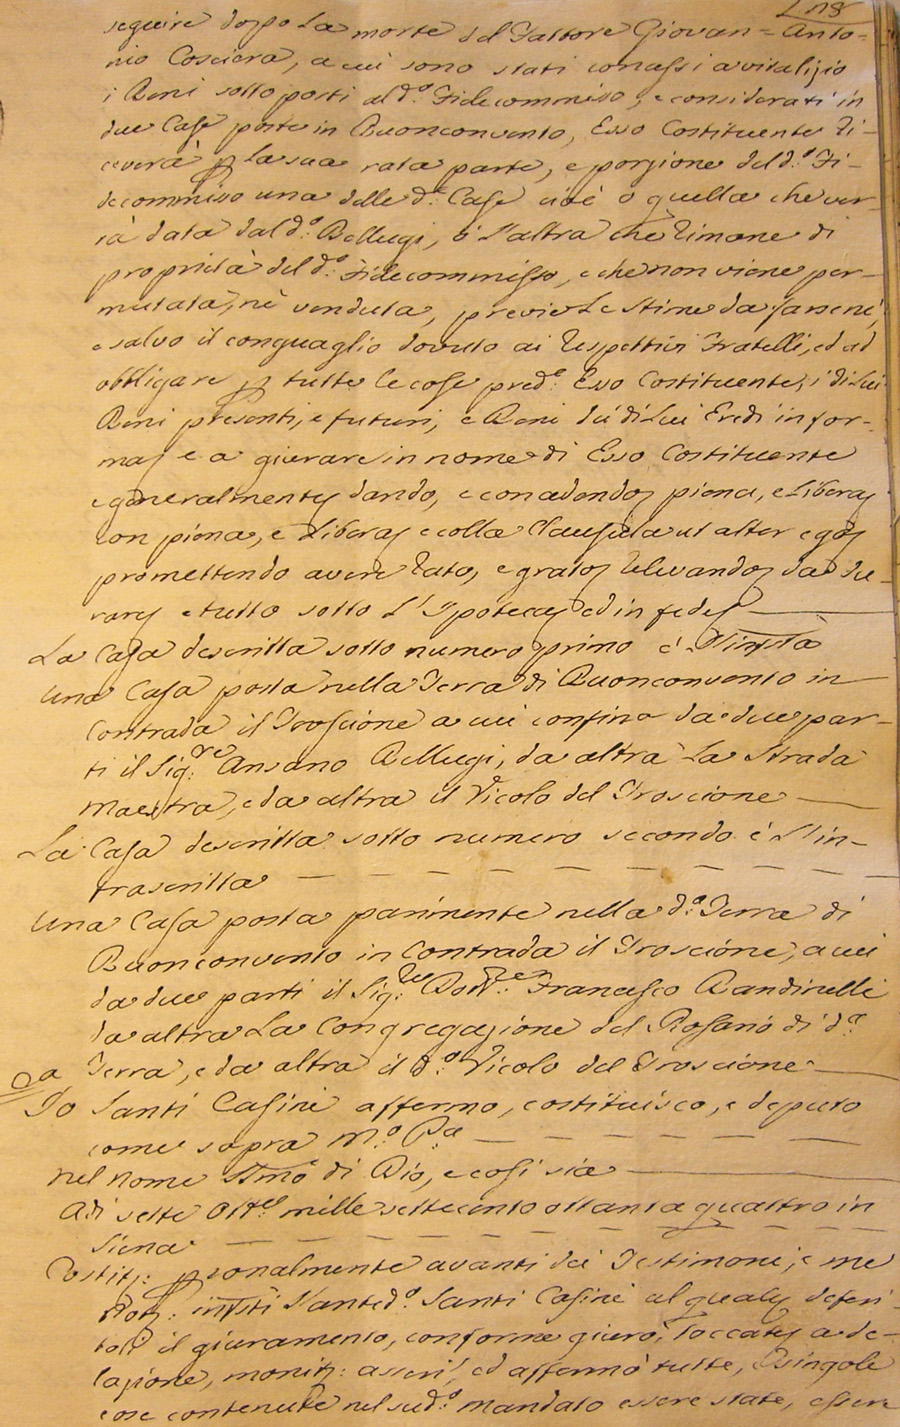 seguire dopo la morte del Fattore Giovan=Anto-
nio Cosciera, a cui sono stati concessi a vitalizio
i Beni sottoposti al d.º Fidecommisso, e considerati in
due Case poste in Buonconvento, Esso Costituente ri-
ceverà p la sua rata parte, e porzione del d.º Fi-
decommisso una delle d.e Case cioè o quella che ver-
rà data dal d.º Bellugi, ò l'altra che rimane di
proprietà del d.º Fidecommisso, e che non viene per-
mutata, nè venduta, previe le stime da farsene,
e salvo il conguaglio dovuto ai respettivi Fratelli, ed ad
obbligare p tutte le cose pred.e Esso Costituente, i di Lui
Beni presenti, e futuri, e Beni dei di Lui Eredi in for-
ma e a giurare in nome di Esso Costituente
e generalmente dando, e concedendo piena, e libera
con piena, e libera e colla Clausula ut alter ego
promettendo avere rato, e grato relevando da
e tutto sotto l'Ipoteca ed in fede
La Casa descritta sotto numero primo è
Una Casa posta nella Terra di Buonconvento in
Contrada il Troscione a cui confina da due par-
ti il Sig.re Ansano Bellugi, da altra La Strada
Maestra, e da altra il Vicolo del Troscione
La Casa descritta sotto numero secondo è l'in-
trascritta
Una Casa posta parimente nella d.a Terra di
Buonconvento in Contrada il Troscione, a cui
da due parti il Sig.re Dott.re Francesco Bandinelli
da altra La Congregazione del Rosario di d.a
Terra, e da altra il d.º Vicolo del Troscione
Io Santi Casini affermo, costituisco, e deputo
come sopra M.º P.a
Nel nome SSmo di Dio, e così sia
Adi sette Ott.e mille settecento ottanta quattro in
Siena
Costit: psonalmente avanti dei Testimoni, e me
Not: infrti l'anted.º Santi Casini al quale deferi-
toli il giuramento, conforme giurò, toccate a de-
lazione, monit: asserì, ed affermò tutte, e singole
cose contenute nel sud.º mandato essere state, essere